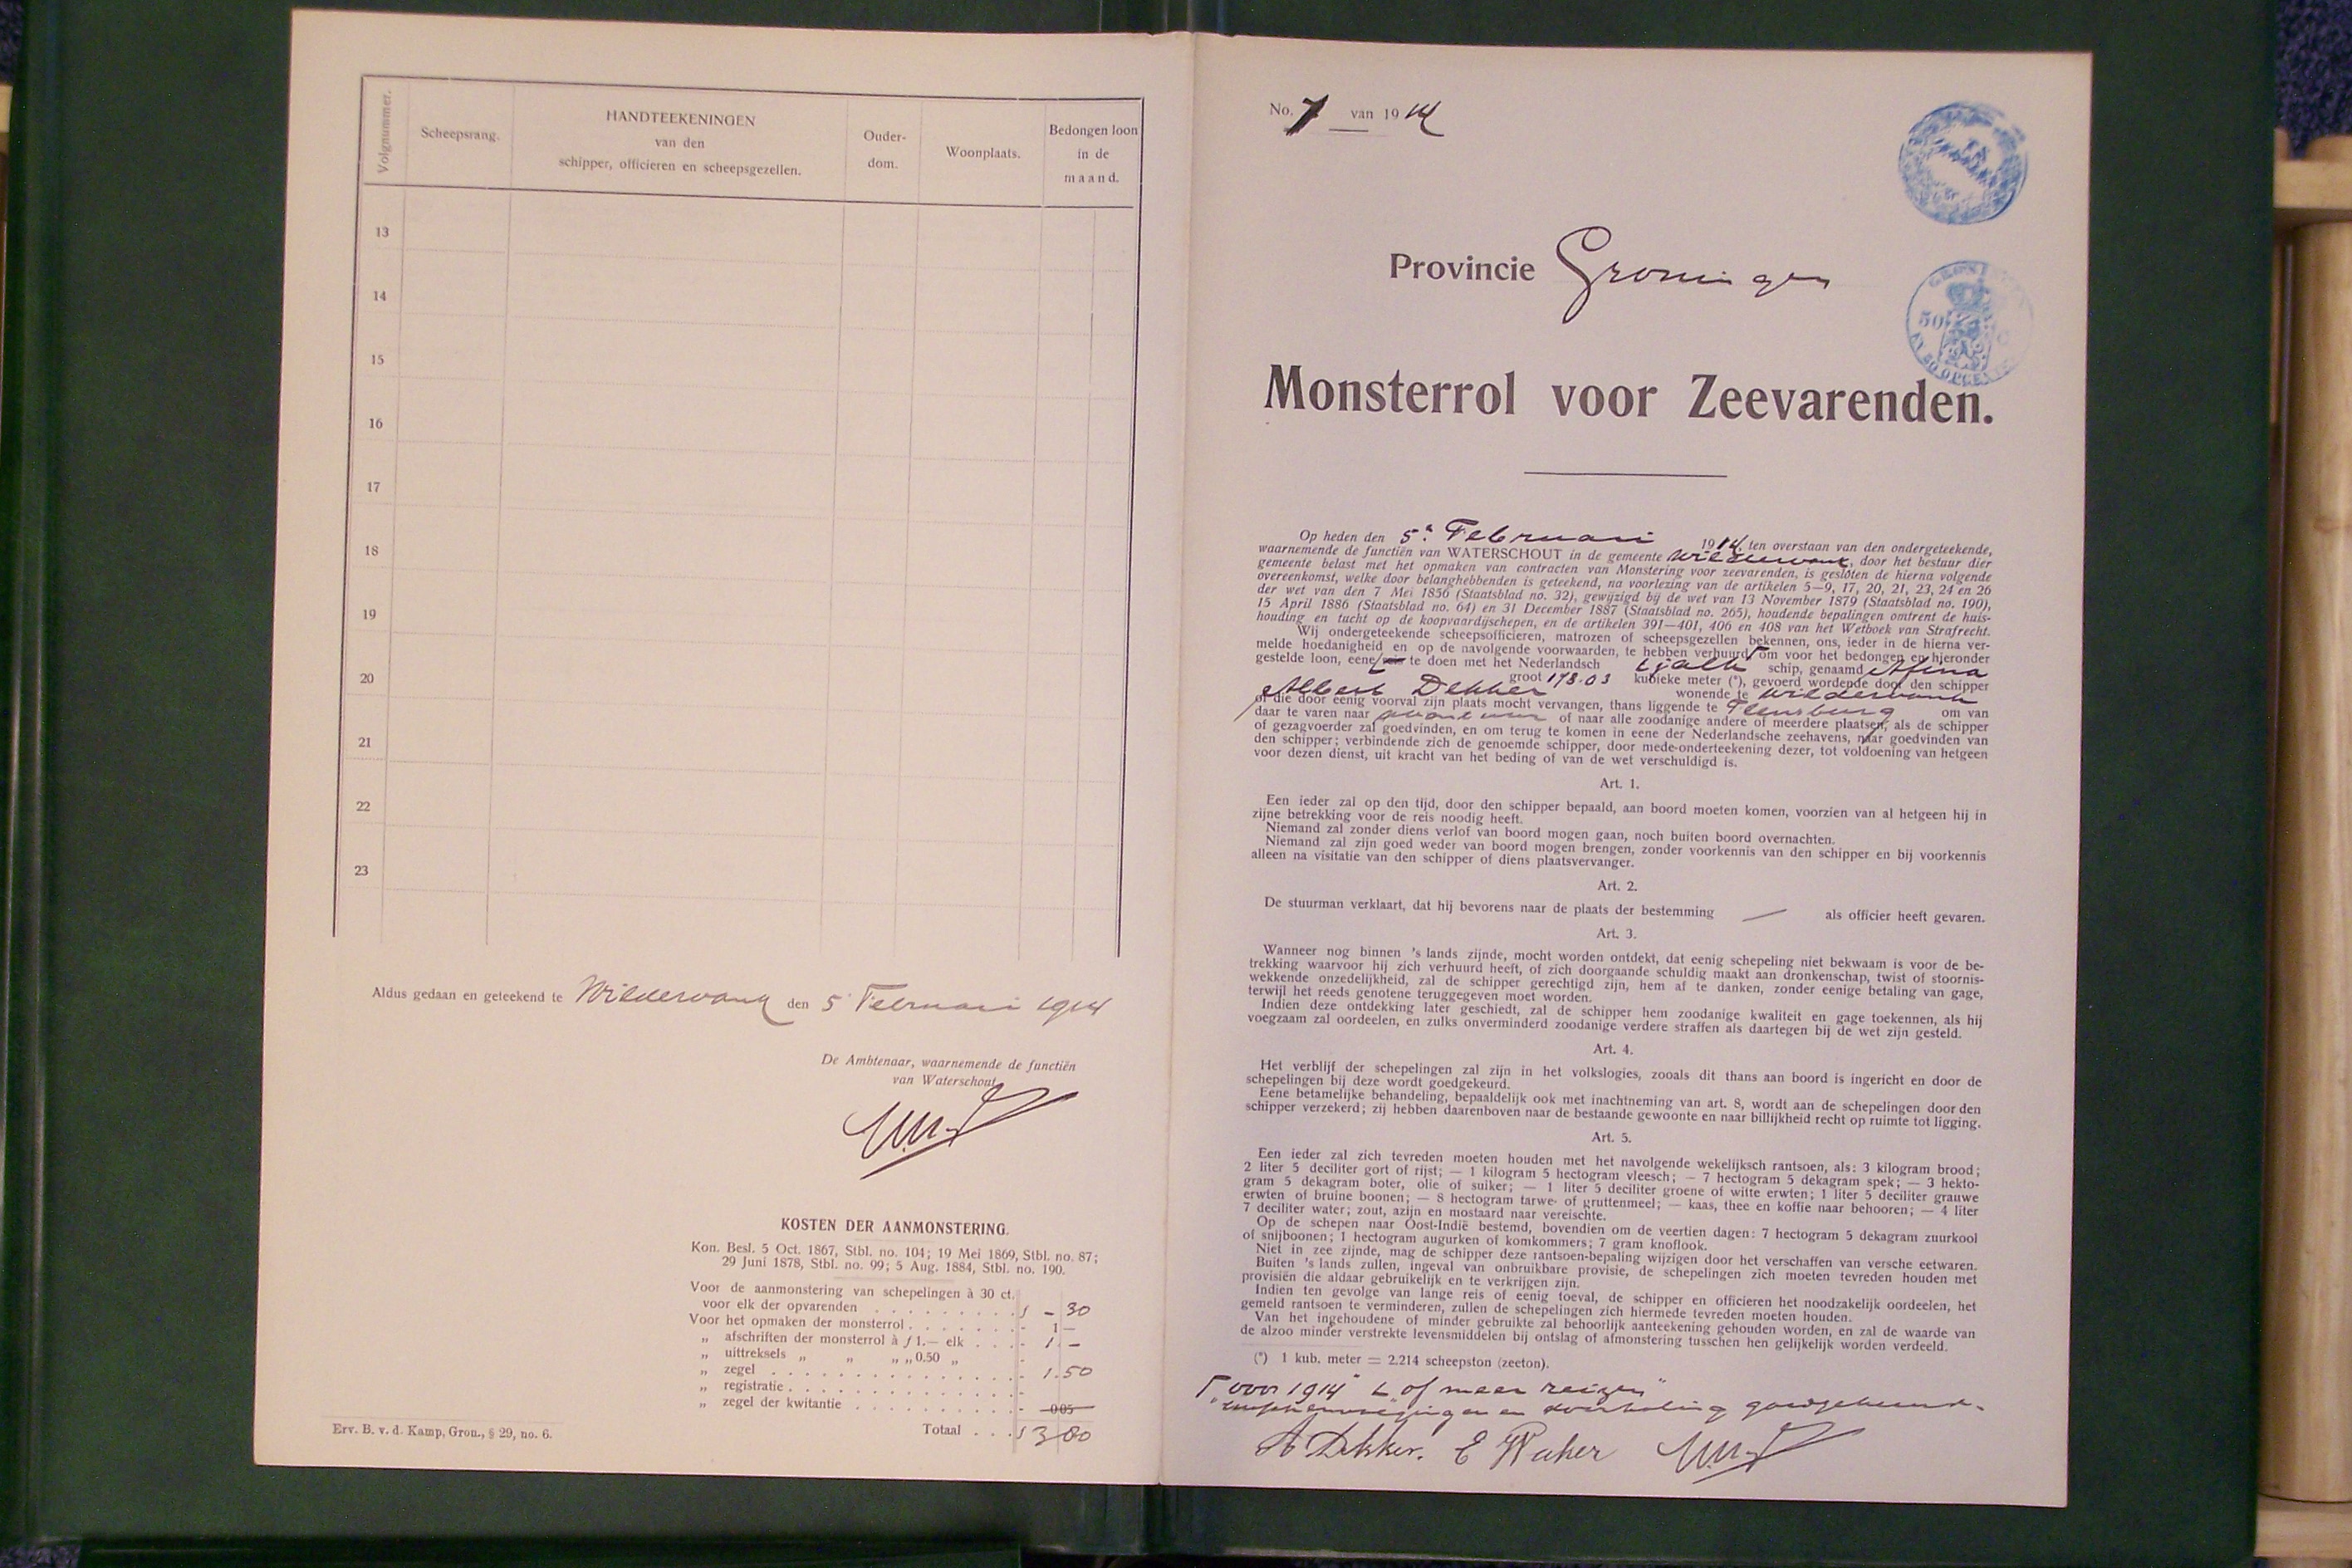 Volgnummer.
Scheepsrang.
HANDTEEKENINGEN
van den
schipper, officieren en scheepsgezellen.
Ouder-
dom.
Woonplaats.
Bedongen loon
in de
maand.
13
14
15
16
17
18
19
20
21
22
23
Aldus gedaan en geteekend te Wildervank den 5 Februari 1914
De Ambtenaar, waarnemende de functiën
van Waterschout
KOSTEN DER AANMONSTERING.
Kon. Besl. 5 Oct. 1867, Stbl. no. 104; 19 Mei 1869, Stbl. no. 87;
29 Juni 1878, Stbl. no. 99; 5 Aug. 1884, Stbl. no. 190.
Voor de aanmonstering van schepelingen à 30 ct.
voor elk der opvarenden . . . . . . . . . ƒ - 30
Voor het opmaken der monsterrol . . . . . . . - 1 —
„ afschriften der monsterrol à ƒ 1.— elk . . . - 1 . —
„ uittreksels „ „ „ „ 0.50 „ -
„ zegel . . . . . . . . . . . . . . . - 1.50
„ registratie . . . . . . . . . . . . . -
„ zegel der kwitantie . . . . . . . . . . - 005
Totaal . . . ƒ 3 80
Erv. B. v. d. Kamp, Gron., § 29, no. 6.
No. 7 van 1914
Provincie Groningen
50
Monsterrol voor Zeevarenden.
Op heden den 5n Februari 1914 ten overstaan van den ondergeteekende,
waarnemende de functiën van WATERSCHOUT in de gemeente Wildervank, door het bestuur dier
gemeente belast met het opmaken van contracten van Monstering voor zeevarenden, is gesloten de hierna volgende
overeenkomst, welke door belanghebbenden is geteekend, na voorlezing van de artikelen 5—9, 17, 20, 21, 23, 24 en 26
der wet van den 7 Mei 1856 (Staatsblad no. 32), gewijzigd bij de wet van 13 November 1879 (Staatsblad no. 190),
15 April 1886 (Staatsblad no. 64) en 31 December 1887 (Staatsblad no. 265), houdende bepalingen omtrent de huis-
houding en tucht op de koopvaardijschepen, en de artikelen 391—401, 406 en 408 van het Wetboek van Strafrecht.
Wij ondergeteekende scheepsofficieren, matrozen of scheepsgezellen bekennen, ons, ieder in de hierna ver-
melde hoedanigheid en op de navolgende voorwaarden, te hebben verhuurd om voor het bedongen en hieronder
gestelde loon, eene reis te doen met het Nederlandsch tjalk schip, genaamd Afina
groot 178.03 kubieke meter (*), gevoerd wordende door den schipper
Albert Dekker wonende te Wildervank
of die door eenig voorval zijn plaats mocht vervangen, thans liggende te Flensburg om van
daar te varen naar of naar alle zoodanige andere of meerdere plaatsen, als de schipper
of gezagvoerder zal goedvinden, en om terug te komen in eene der Nederlandsche zeehavens, naar goedvinden van
den schipper; verbindende zich de genoemde schipper, door mede-onderteekening dezer, tot voldoening van hetgeen
voor dezen dienst, uit kracht van het beding of van de wet verschuldigd is.
Art. 1.
Een ieder zal op den tijd, door den schipper bepaald, aan boord moeten komen, voorzien van al hetgeen hij in
zijne betrekking voor de reis noodig heeft.
Niemand zal zonder diens verlof van boord mogen gaan, noch buiten boord overnachten.
Niemand zal zijn goed weder van boord mogen brengen, zonder voorkennis van den schipper en bij voorkennis
alleen na visitatie van den schipper of diens plaatsvervanger.
Art. 2.
De stuurman verklaart, dat hij bevorens naar de plaats der bestemming — als officier heeft gevaren.
Art. 3.
Wanneer nog binnen 's lands zijnde, mocht worden ontdekt, dat eenig schepeling niet bekwaam is voor de be-
trekking waarvoor hij zich verhuurd heeft, of zich doorgaande schuldig maakt aan dronkenschap, twist of stoornis-
wekkende onzedelijkheid, zal de schipper gerechtigd zijn, hem af te danken, zonder eenige betaling van gage,
terwijl het reeds genotene teruggegeven moet worden.
Indien deze ontdekking later geschiedt, zal de schipper hem zoodanige kwaliteit en gage toekennen, als hij
voegzaam zal oordeelen, en zulks onverminderd zoodanige verdere straffen als daartegen bij de wet zijn gesteld.
Art. 4.
Het verblijf der schepelingen zal zijn in het volkslogies, zooals dit thans aan boord is ingericht en door de
schepelingen bij deze wordt goedgekeurd.
Eene betamelijke behandeling, bepaaldelijk ook met inachtneming van art. 8, wordt aan de schepelingen door den
schipper verzekerd; zij hebben daarenboven naar de bestaande gewoonte en naar billijkheid recht op ruimte tot ligging.
Art. 5.
Een ieder zal zich tevreden moeten houden met het navolgende wekelijksch rantsoen, als: 3 kilogram brood;
2 liter 5 deciliter gort of rijst; — 1 kilogram 5 hectogram vleesch; — 7 hectogram 5 dekagram spek; — 3 hekto-
gram 5 dekagram boter, olie of suiker; — 1 liter 5 deciliter groene of witte erwten; 1 liter 5 deciliter grauwe
erwten of bruine boonen; — 8 hectogram tarwe- of gruttenmeel; — kaas, thee en koffie naar behooren; — 4 liter
7 deciliter water; zout, azijn en mostaard naar vereischte.
Op de schepen naar Oost-Indië bestemd, bovendien om de veertien dagen: 7 hectogram 5 dekagram zuurkool
of snijboonen; 1 hectogram augurken of komkommers; 7 gram knoflook.
Niet in zee zijnde, mag de schipper deze rantsoen-bepaling wijzigen door het verschaffen van versche eetwaren.
Buiten 's lands zullen, ingeval van onbruikbare provisie, de schepelingen zich moeten tevreden houden met
provisiën die aldaar gebruikelijk en te verkrijgen zijn.
Indien ten gevolge van lange reis of eenig toeval, de schipper en officieren het noodzakelijk oordeelen, het
gemeld rantsoen te verminderen, zullen de schepelingen zich hiermede tevreden moeten houden.
Van het ingehoudene of minder gebruikte zal behoorlijk aanteekening gehouden worden, en zal de waarde van
de alzoo minder verstrekte levensmiddelen bij ontslag of afmonstering tusschen hen gelijkelijk worden verdeeld.
(*) 1 kub. meter = 2.214 scheepston (zeeton).
"voor 1914" "of meer reizen"
en doorhaling goedgekeurd.
A Dekker. E